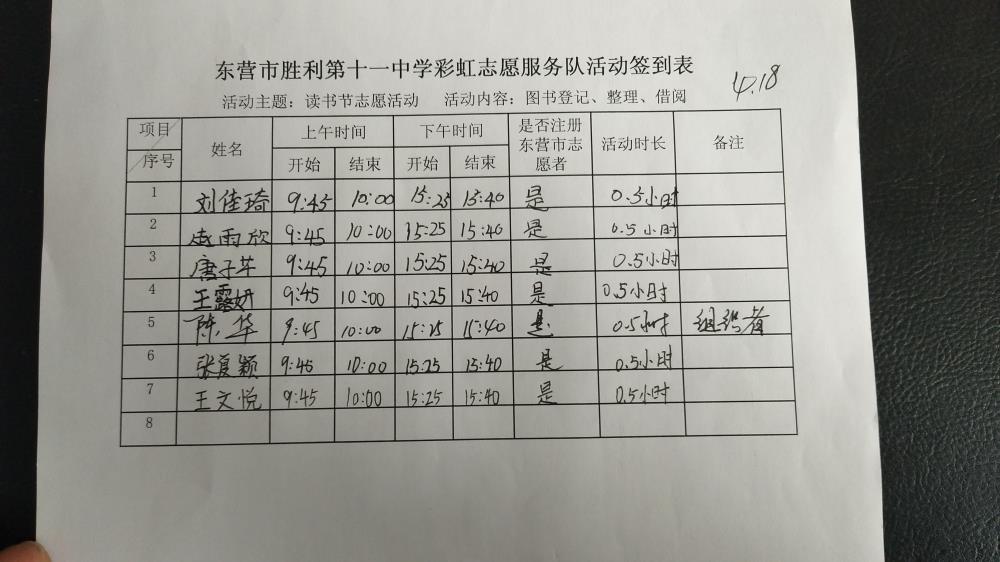 东营市胜利第十一中学彩虹志愿服务队活动签到表
4.18
活动主题：读书节志愿活动 活动内容：图书登记、整理、借阅
项目 序号 姓名 上午时间 开始 结束 下午时间 开始 结束 是否注册东营市志愿者 活动时长 备注
1 刘佳琦 9:45 10:00 15:25 15:40 是 0.5小时
2 赵雨欣 9:45 10:00 15:25 15:40 是 0.5小时
3 唐子苹 9:45 10:00 15:25 15:40 是 0.5小时
4 王露妍 9:45 10:00 15:25 15:40 是 0.5小时
5 陈华 9:45 10:00 15:25 15:40 是 0.5小时 组织者
6 张夏颖 9:45 10:00 15:25 15:40 是 0.5小时
7 王文悦 9:45 10:00 15:25 15:40 是 0.5小时
8